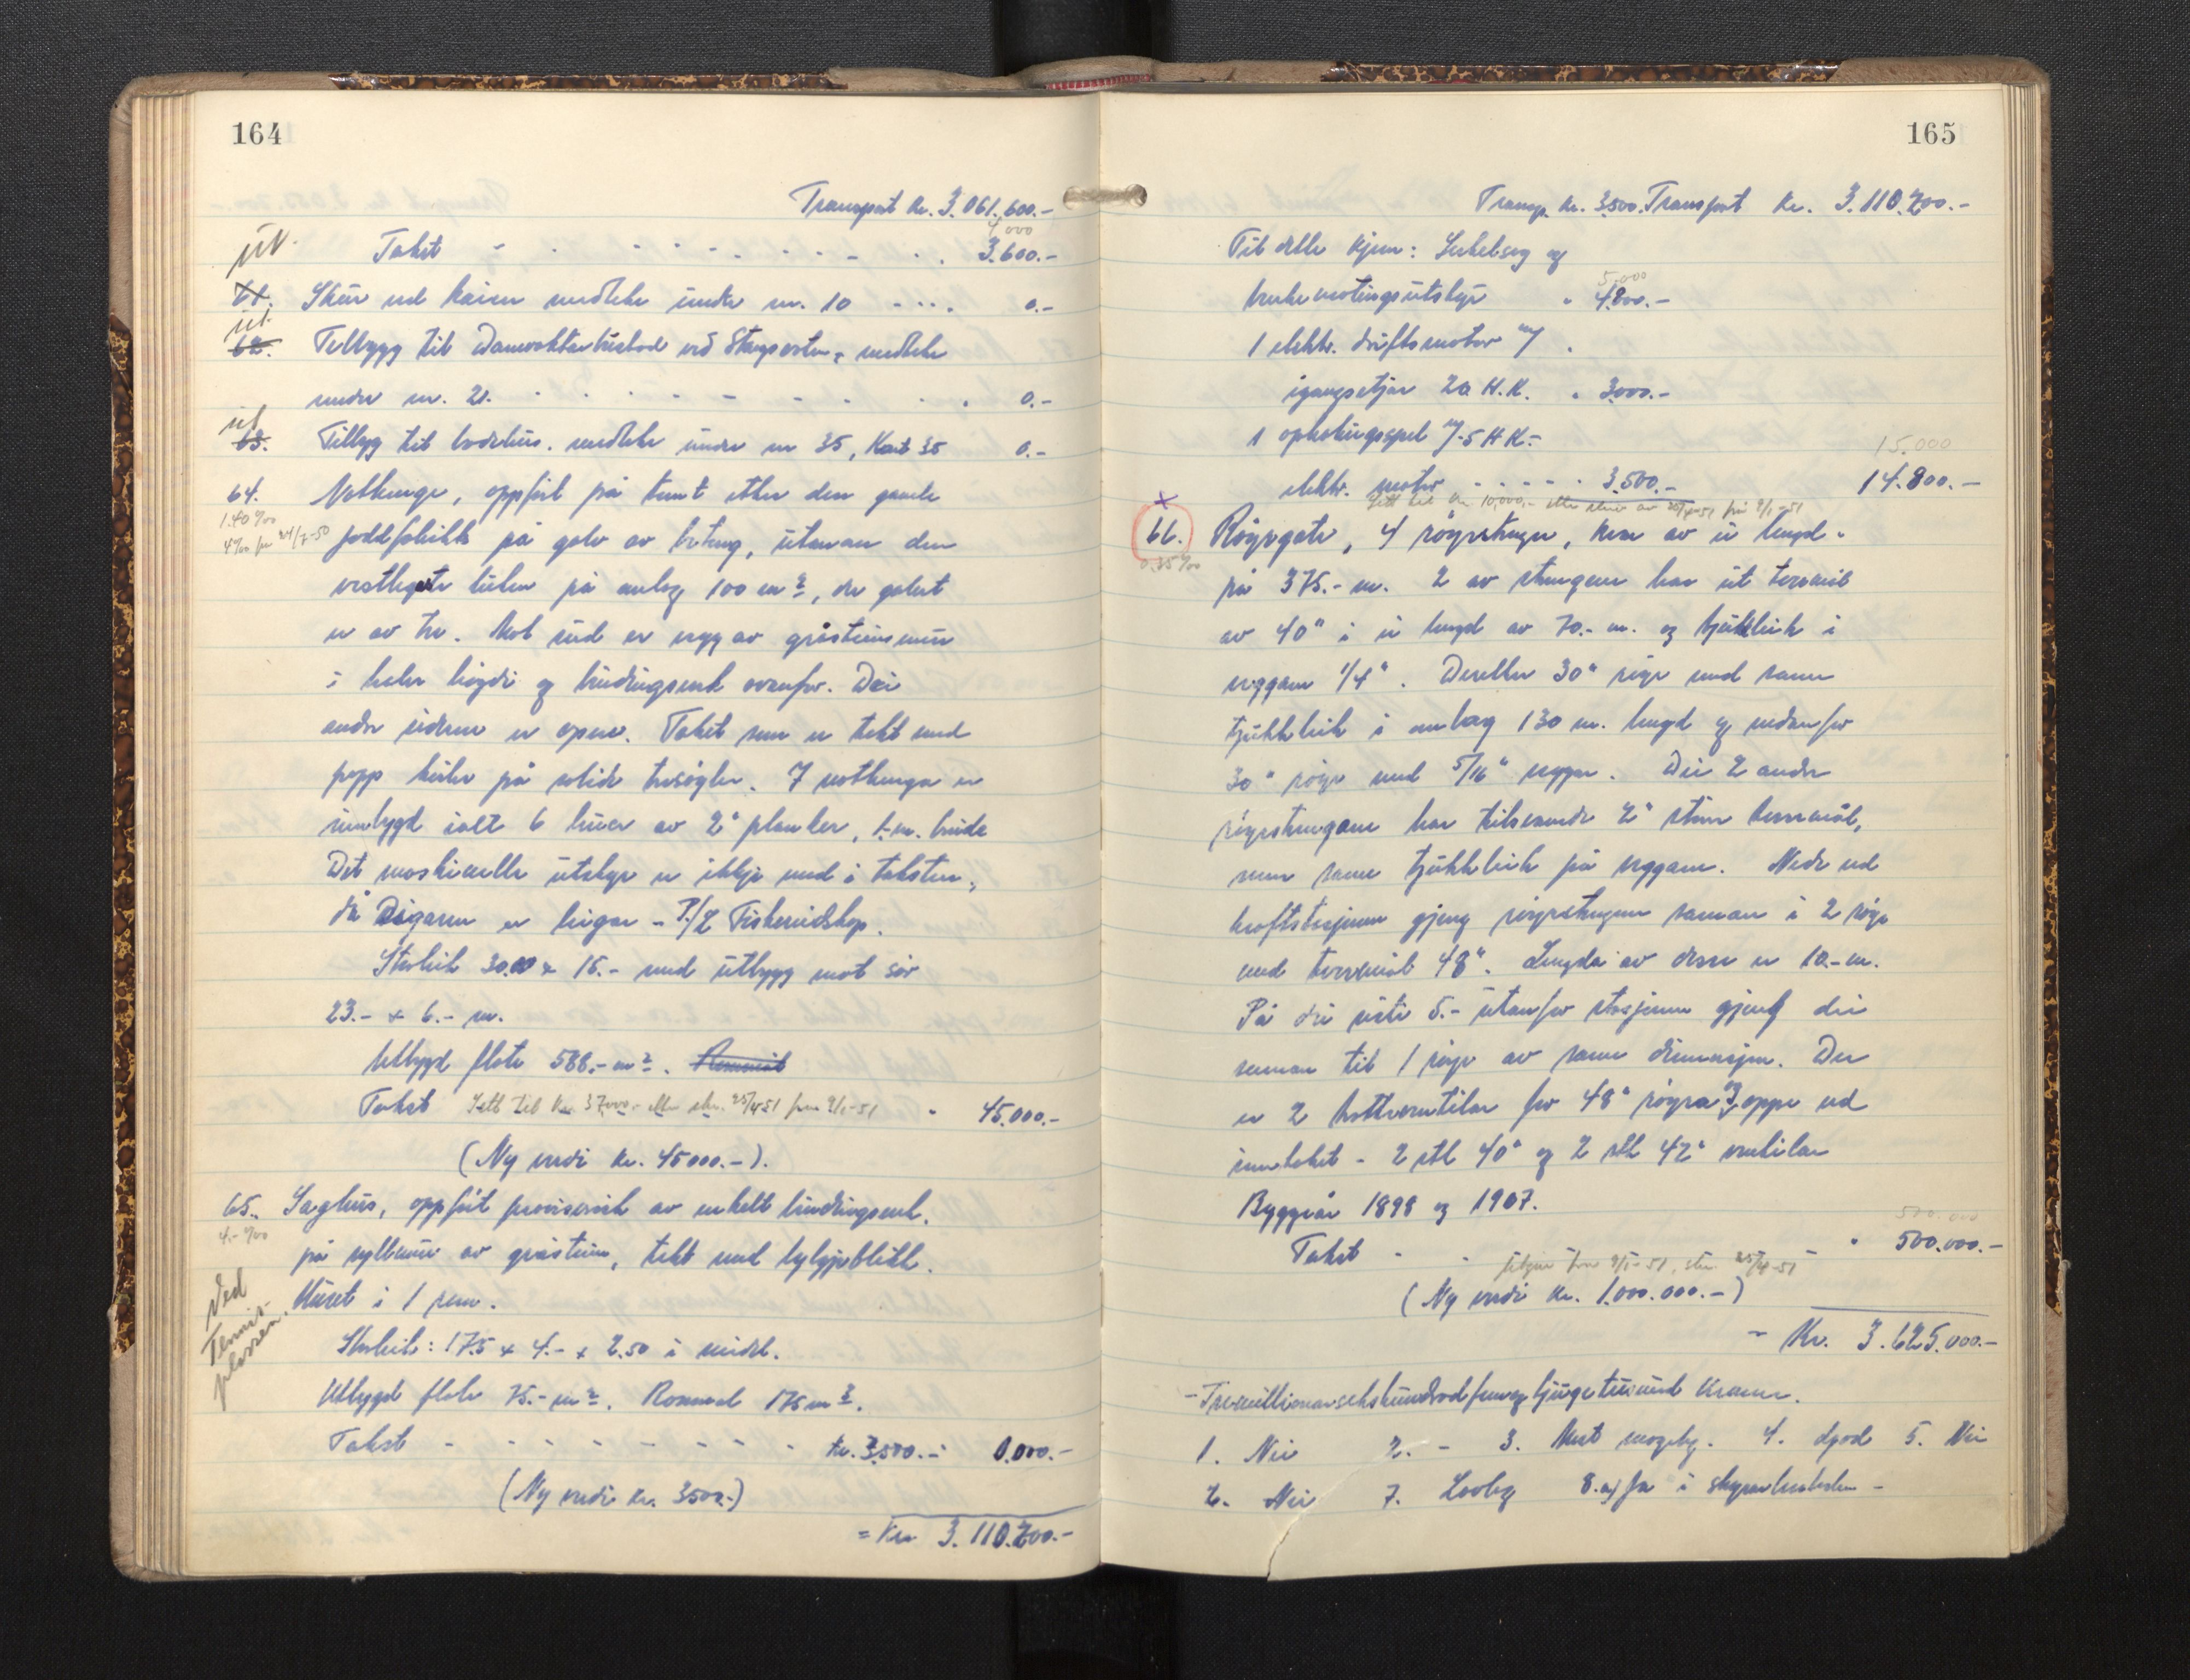 164
Transport kr. 3.061.600.-
4000
ut. Takst - - - - - - - 3.600.-
61. Skur ved kaien medteke under nr. 10 - - - 0.-
ut.
62. Tilbygg til Damvaktarbustad ved Storevatn, medteke
under nr. 21. - - - - - 0.-
ut
63. Tillbyg til badehus. medteke under nr 35, Kart 35 0.-
64. Nothenge, oppført på tomt etter den gamle
1.40 ‰
4‰ fra 24/7-50
joddfabrikk på golv av betong, utanan den
vestlegste luten på omlag 100 m², der golvet
er av tre. Mot sud er vegg av gråsteinsmur
i halv høgdi og bindingsverk ovanfor. Dei
andre sidene er opne. Taket som er tekt med
papp kviler på solide tresøyler. I nothenga er
innbygd ialt 6 bruer av 2" planker, 1.-m. breide
Det maskinelle utstyr er ikkje med i taksten,
då eigaren er leigar - P/L Fiskereidskap.
Storleik 30.00 x 15.- med utbygg mot sør
23.- x 6.- m.
Utbygd flate 588.- m². Rommål
Takst Sett til kr. 37000.- etter skr. 25/4-51 fra 9/1-51 " 45.000.-
(Ny verdi kr. 45000.-).
65. Saghus, oppført provisorisk av enkelt bindingsverk.
4.- ‰
på syllmur av gråstein, tekt med bylgjeblikk.
Huset i 1 rom.
Ved
Tennis-
plassen.
Storleik: 17.5 x 4.- x 2.50 i midel.
Utbygd flate 75.- m². Rommål 175 m³.
Takst - - - - - - - - kr. 3500.- 0.000.-
(Ny verdi kr. 3500.-)
= Kr 3.110.200.-
165
Transp. kr. 3500. Transport kr. 3.110.200.-
Til dette kjem: Sirkelsag og
5.000
" 4800.-
1 elektr. driftsmotor m/
igangsetjar 20 H.K. " 3000.-
1 opphalingsspel m/ 5 H K.-
15.000
elektr. motor - - - - - 3.500.- 14.800.-
Sett til kr 10,000,- etter skriv av 25/4-51 frå 9/1-51
x
66. Røyrgate, 4 røyrstrenger, kvar av ei lengd
0.35 ‰
på 375.- m. 2 av strengene har eit tverrmål
av 40" i ei lengd av 70.- m. og tjukkleik i
veggane 1/4". Deretter 30" røyr med same
tjukkleik i omlag 130 m. lengd og nedanfor
30" røyr med 5/16" vegger. Dei 2 andre
røyrstrengane har tilsvarande 2" større tverrmål,
men same tjukkleik på veggane. Nede ved
kraftstasjonen gjeng røyrstrengene saman i 2 røyr
med tverrmål 48". Lengda av desse er 10.- m.
På dei siste 5.- utanfor stasjonen gjeng dei
saman til 1 røyr av same dimensjon. Der
er 2 hovudventilar for 48" røyra og oppe ved
inntaket - 2 stk 40" og 2 stk 42" ventilar
Byggeår 1898 og 1907.
500.000
Takst - - " 500.000.-
Utgår fra 9/1-51, skr. 25/4-51
(Ny verdi kr. 1.000.000.-)
- Kr. 3.625.000.-
- Tremillionarsekshundradfemogtjugetusund kroner.
1. Nei 2. - 3. Mest mogeleg. 4. dpod 5. Nei
6. Nei 7. Lovleg 8. a) Ja i